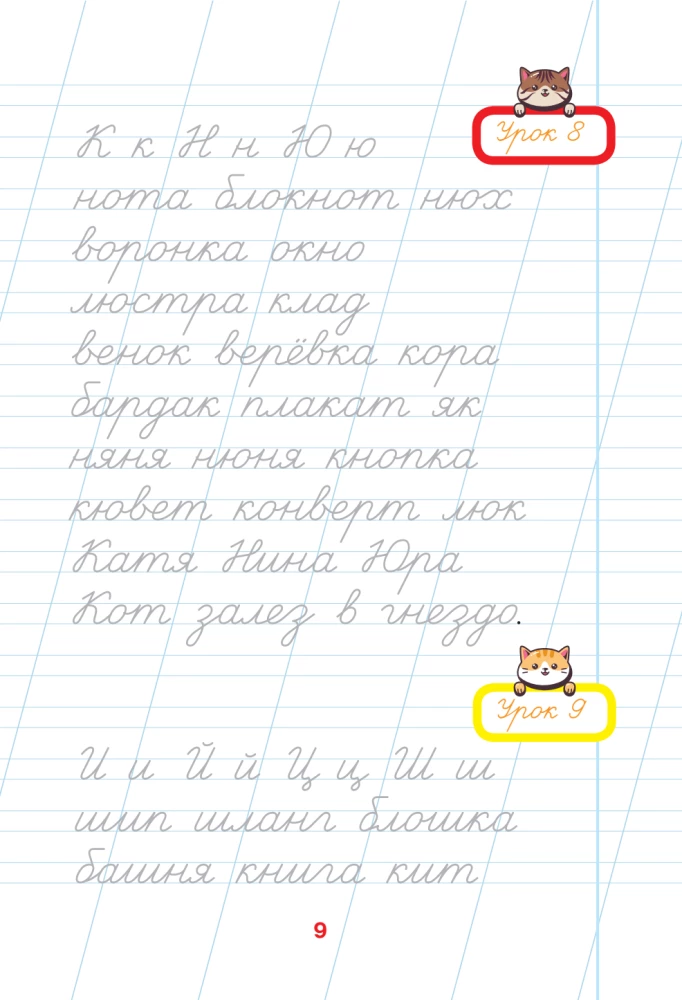 Урок 8
К к Н н Ю ю
нота блокнот нюх
воронка окно
люстра клад
венок верёвка кора
бардак плакат як
няня нюня кнопка
кювет конверт люк
Катя Нина Юра
Кот залез в гнездо.
Урок 9
И и Й й Ц ц Ш ш
шип шланг блошка
башня книга кит
9